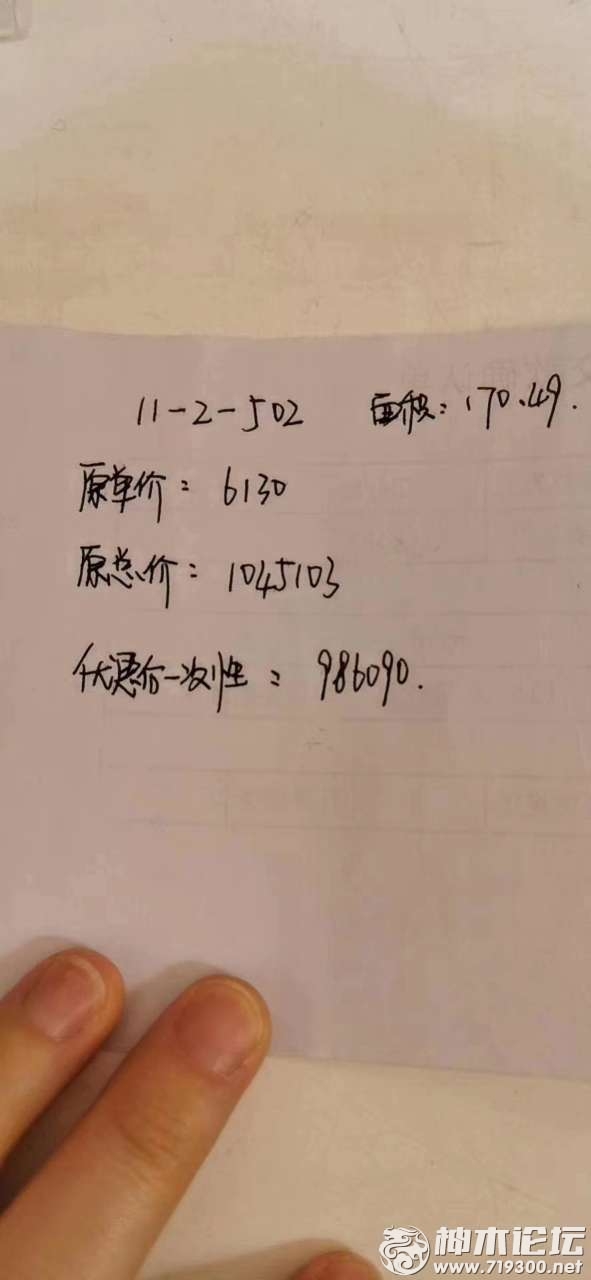 11-2-502 面积:170.49.
原单价:6130
原总价:1045103
优惠价一次性:986090.
神木论坛
www.719300.net